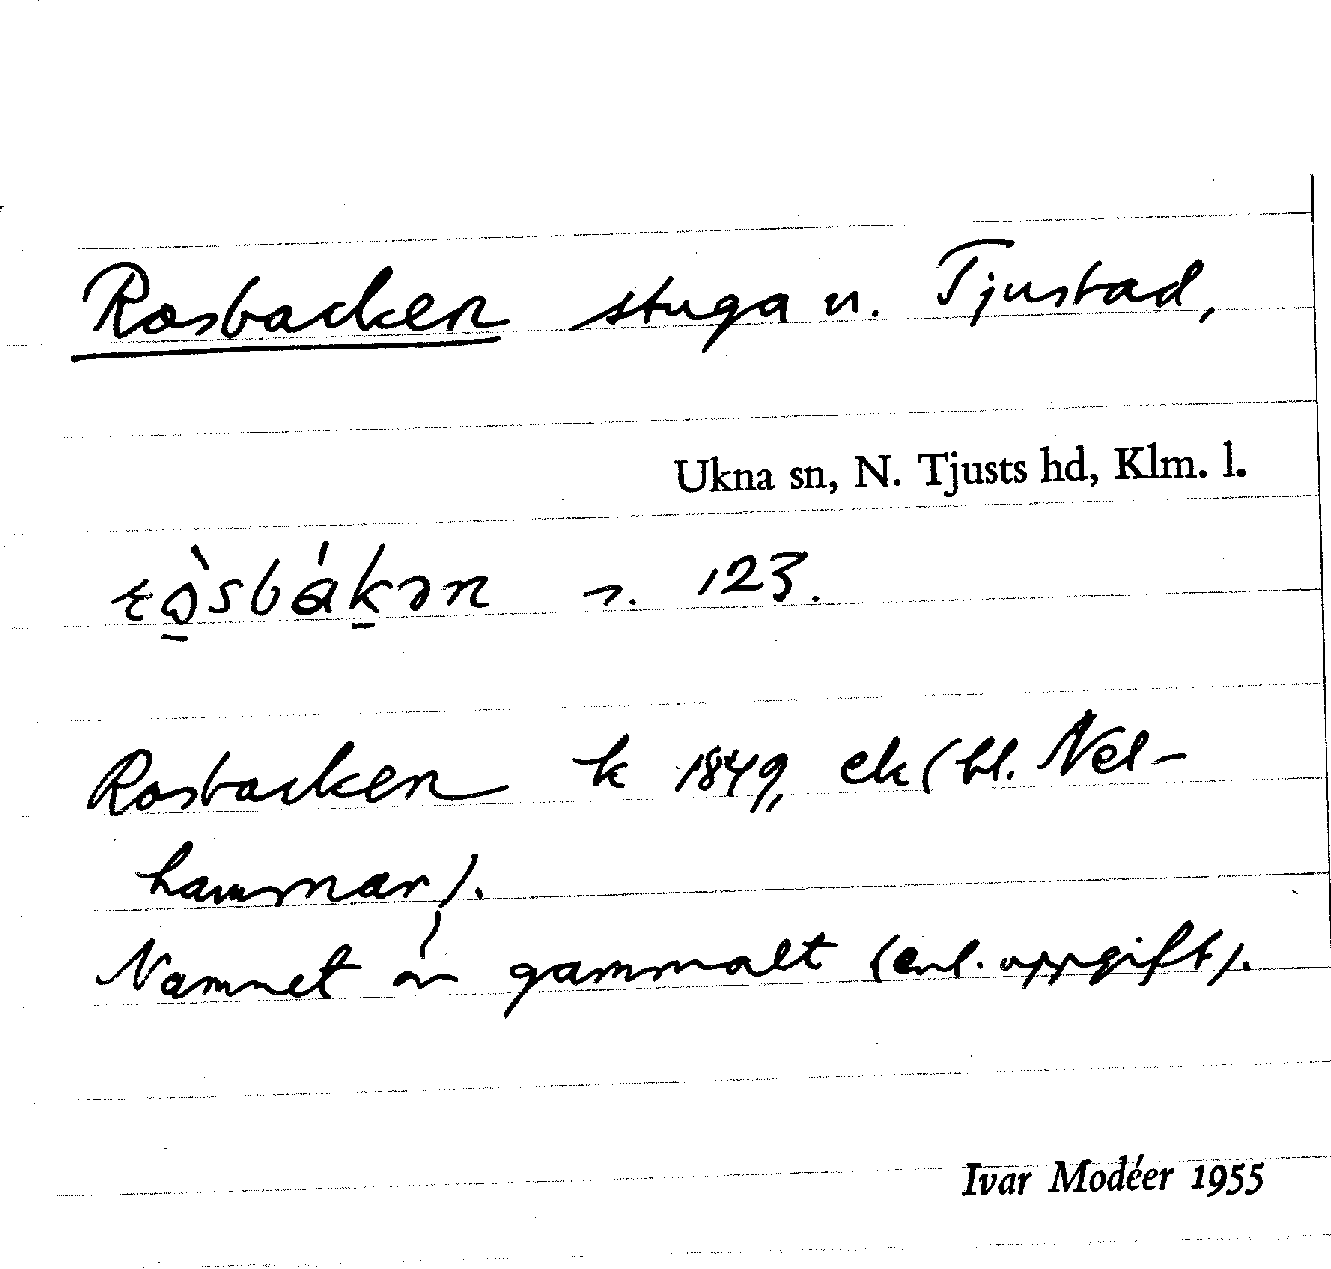 Rosbacken stuga u. Tjusbad,
Ukna sn, N. Tjusts hd, Klm. l.
123.
Rosbacken k 1849, ek (bl. Nel-
hammar).
Namnet är gammalt (enl. uppgift).
Ivar Modéer 1955